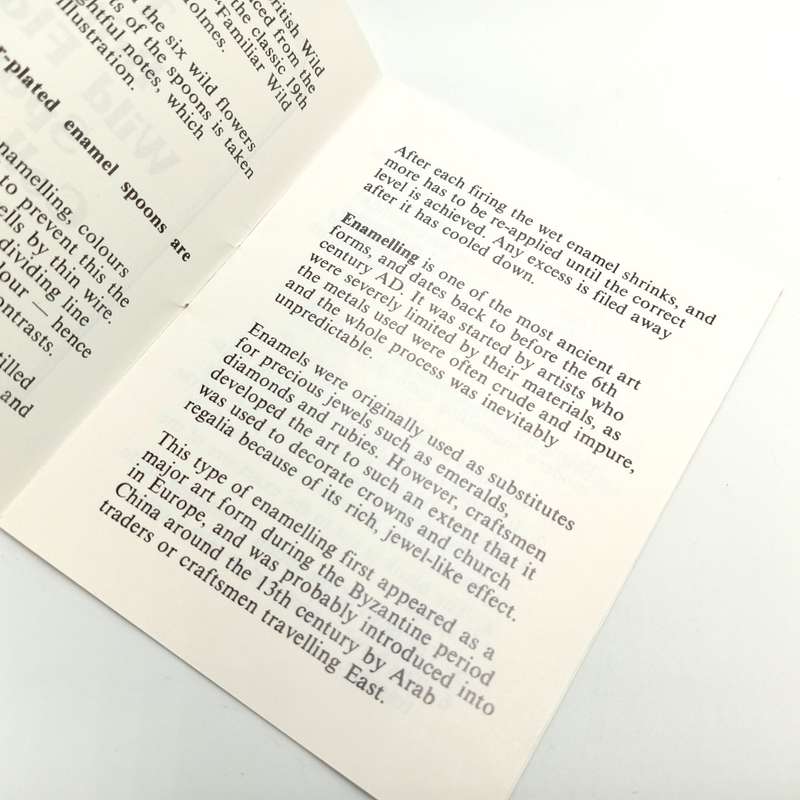 ritish Wild
ced from the
the classic 19th
"Familiar Wild
olmes.
the six wild flowers
ts of the spoons is taken
ghtful notes, which
illustration.
r-plated enamel spoons are
namelling, colours
to prevent this the
ells by thin wire.
dividing line
lour — hence
ontrasts.
tilled
and
After each firing the wet enamel shrinks, and
more has to be re-applied until the correct
level is achieved. Any excess is filed away
after it has cooled down.
Enamelling is one of the most ancient art
forms, and dates back to before the 6th
century AD. It was started by artists who
were severely limited by their materials, as
the metals used were often crude and impure,
and the whole process was inevitably
unpredictable.
Enamels were originally used as substitutes
for precious jewels such as emeralds,
diamonds and rubies. However, craftsmen
developed the art to such an extent that it
was used to decorate crowns and church
regalia because of its rich, jewel-like effect.
This type of enamelling first appeared as a
major art form during the Byzantine period
in Europe, and was probably introduced into
China around the 13th century by Arab
traders or craftsmen travelling East.